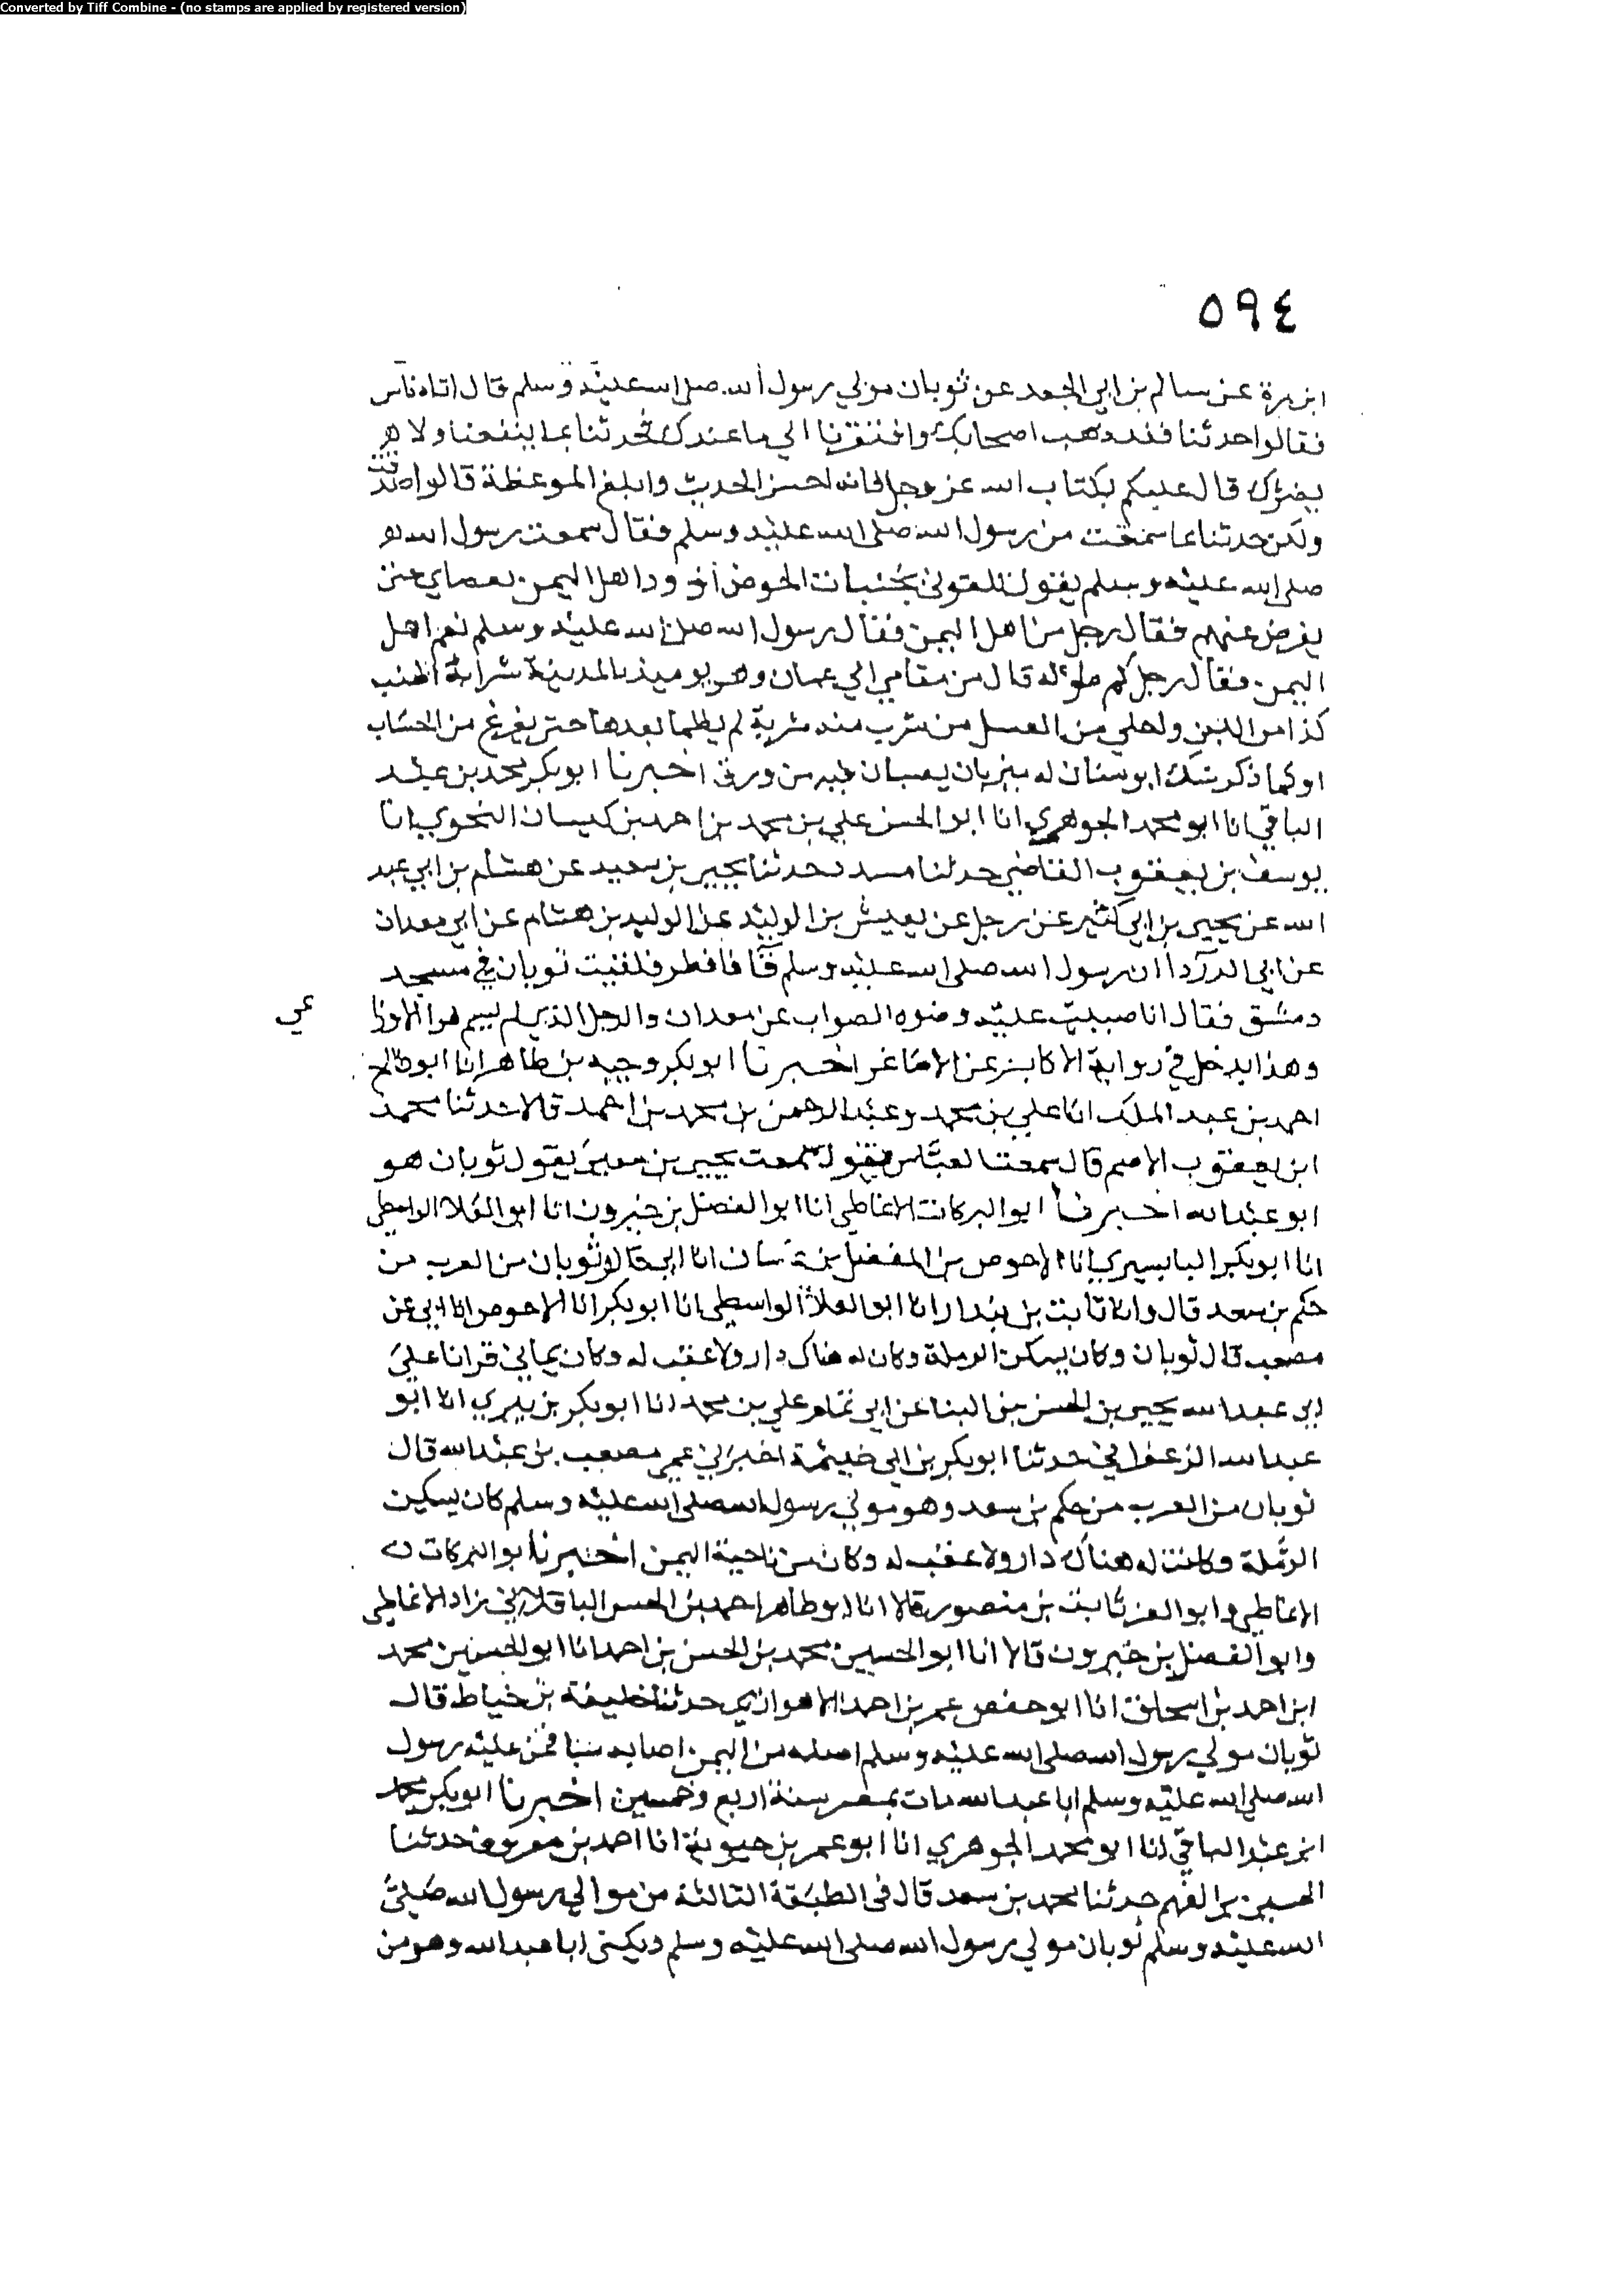 Converted by Tiff Combine - (no stamps are applied by registered version)
٥٩٤
ابن مرة عن سالم بن ابي الجعد عن ثوبان مولي رسول الله صلى الله عليه وسلم قال اتاه ناس
فقالوا حدثنا فقد ذهب اصحابك وافتقرنا الي ما عندك فحدثنا بما ينفعنا ولا
يضرك قال عليكم بكتاب الله عز وجل فانه احسن الحديث وابلغ الموعظة قالوا صدقت
ولكن حدثنا بما سمعت من رسول الله صلى الله عليه وسلم فقال سمعت رسول الله
صلى الله عليه وسلم يقول بجنبات الحوض اذود اهل اليمن بعصاي حتى
يرفض عنهم فقال رجل من اهل اليمن فقال رسول الله صلى الله عليه وسلم نعم اهل
اليمن فقال رجل كم طوله قال من مقامي الي عمان وهو يوميذ بالمدينة شرابه
كذا من اللبن واحلي من العسل من شرب منه شربة لم يظما بعدها حتى يفرغ من الحساب
او كما ذكر شك ابو سنان له ميزبان يصبان فيه من ورق اخبرنا ابو بكر محمد بن عبد
الباقي انا ابو محمد الجوهري انا ابو الحسن علي بن محمد بن احمد بن كيسان النحوي انا
يوسف بن يعقوب القاضي حدثنا مسدد حدثنا يحيى بن سعيد عن هشام بن ابي عبد
الله عن يحيى بن ابي كثير عن رجل عن يعيش بن الوليد عن الوليد بن هشام عن ابي معدان
عن ابي الدردا ان رسول الله صلى الله عليه وسلم قا فافطر فلقيت ثوبان في مسجد
دمشق فقال انا صببت عليه وضوه الصواب عن معدان والرجل الذي لم يسم هو الاوزا
عي
وهذا يدخل في رواية الاكابر عن الاصاغر اخبرنا ابو بكر وجيه بن طاهر انا ابو صالح
احمد بن عبد الملك انا علي بن محمد وعبد الرحمن بن محمد بن احمد قالا حدثنا محمد
ابن يعقوب الاصم قال سمعت العباس يقول سمعت يحيى بن معين يقول ثوبان هو
ابو عبد الله اخبرنا ابو البركات الانماطي انا ابو الفضل بن خيرون انا ابو العلا الواسطي
انا ابو بكر البابسيري انا الاحوص بن المفضل بن غسان انا ابي قال وثوبان من العرب من
حكم بن سعد قال وانا ثابت بن بندار انا ابو العلا الواسطي انا ابو بكر انا الاحوص انا ابي عن
مصعب قال ثوبان وكان يسكن الرملة وكان له هناك دار ولا عقب له وكان يماني قرانا على
ابي عبد الله يحيى بن الحسن بن البنا عن ابي تمام علي بن محمد انا ابو بكر بن بيري انا ابو
عبد الله الزعفراني حدثنا ابو بكر بن ابي خيثمة اخبرني عمي مصعب بن عبد الله قال
ثوبان من العرب من حكم بن سعد وهو مولي رسول الله صلى الله عليه وسلم كان يسكن
الرملة وكانت له هناك دار ولا عقب له وكان من ناحية اليمن اخبرنا ابو البركات
الانماطي وابو العز ثابت بن منصور قالا انا ابو طاهر احمد بن الحسن الباقلاني زاد الانماطي
وابو الفضل بن خيرون قالا انا ابو الحسين محمد بن الحسن بن احمد انا ابو الحسين محمد
ابن احمد بن اسحاق انا ابو حفص عمر بن احمد الاهوازي حدثنا خليفة بن خياط قال
ثوبان مولي رسول الله صلى الله عليه وسلم اصله من اليمن اصابه سبا فمن عليه رسول
الله صلى الله عليه وسلم ابا عبد الله مات بمصر سنة اربع وخمسين اخبرنا ابو بكر محمد
ابن عبد الباقي انا ابو محمد الجوهري انا ابو عمر بن حيوية انا احمد بن معروف حدثنا
الحسين بن الفهم حدثنا محمد بن سعد قال في الطبقة الثالثة من موالي رسول الله صلى
الله عليه وسلم ثوبان مولي رسول الله صلى الله عليه وسلم ويكنى ابا عبد الله وهو من